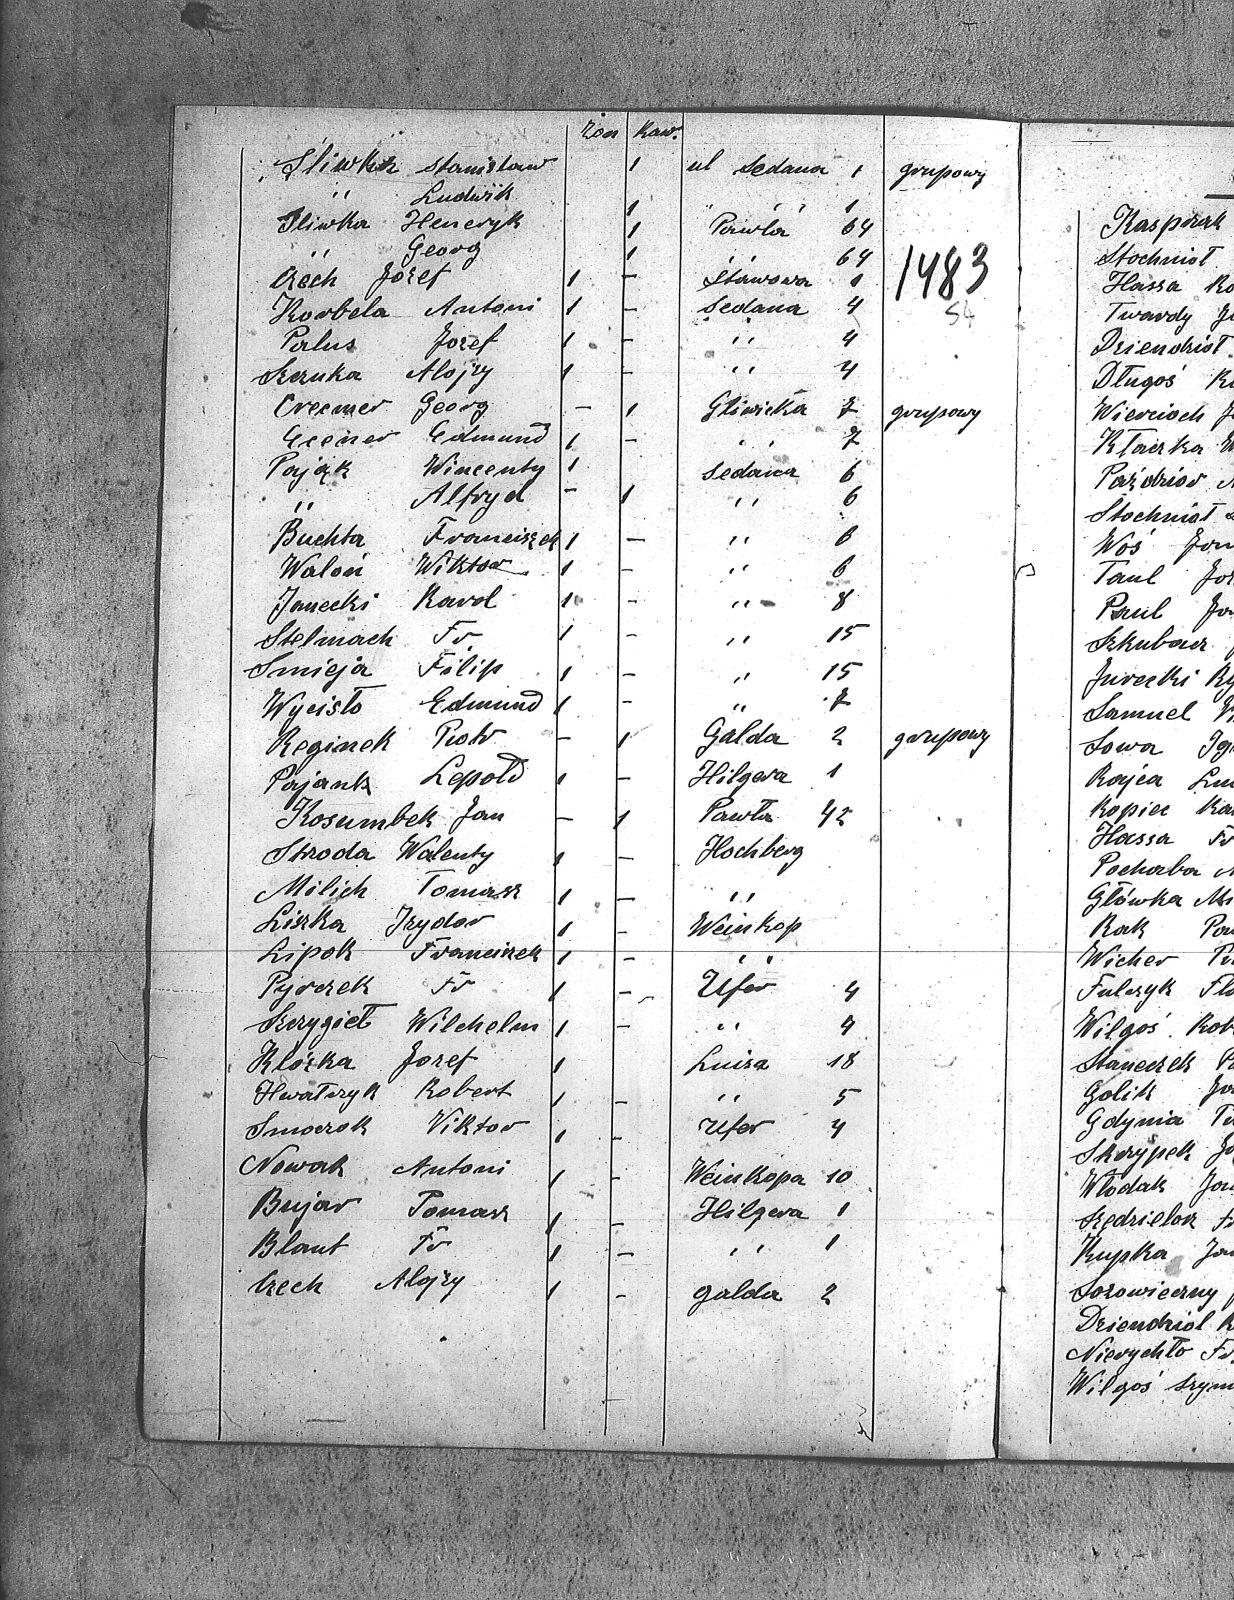 żon kaw.
Śliwka Stanisław 1 ul Sedana 1 grupowy
" Ludwik 1 " " " 1
Sliwka Henryk 1 Pawła 64
" Georg 1 " " 64
Czech Jozef 1 - Stawowa 1
1483
Korbela Antoni 1 - Sedana 4
54
Palus Jozef 1 - " 4
Szruka Alojzy 1 - " 4
Creemer Georg - 1 Gliwicka 7 grupowy
Edmund 1 - " 7
Pająk Wincenty 1 Sedana 6
" Alfryd - 1 " 6
Buchta Franciszek 1 - " 6
Waloń Wiktor 1 - " 6
Janecki Karol 1 - " 8
Stelmach Fr. 1 - " 15
Smieja Filip 1 - " 15
Wycisło Edmund 1 - " 7
Reginek Piotr - 1 Galda 2 grupowy
Pajank Lepold 1 - Hilgera 1
Kosumbek Jan - 1 Pawła 42
Sroda Walenty 1 - Hochberg
Milich Tomasz 1 - "
Liszka Izydor 1 - Weinkop
Lipok Franciszek 1 - "
Pyrczek Fr 1 - Ufer 4
Szczygieł Wilchelm 1 - " 4
Klozka Jozef 1 Luiza 18
Hwałczyk Robert 1 - " 5
Smoczok Viktor 1 - Ufer 4
Nowak Antoni 1 - Weinkopa 10
Bujar Tomasz 1 - Hilgera 1
Blaut Fr 1 - " 1
Czech Alojzy 1 - Galda 2
Kasprzak
Stochnioł
Hassa Ko
Twardy J
Dziendzioł
Długoś K
Wiercioch J
Kłaczka W
Paździor
Stochnioł
Woś Jan
Taul Joz
Paul Jo
Szkubacz
Jurecki Ry
Samuel Wi
Sowa Ig
Rajca Lu
Kopiec Ka
Hassa Fr
Pochaba
Główka Mi
Rak Pa
Wicher Pa
Fulczyk Fl
Wilgoś Rob
Staneczek Pa
Golik Jo
Gdynia Pa
Skrzypek Jo
Włodak Jan
Szędzielorz Fr
Kupka Jan
Sozowieczny
Dziendziol K
Nierychło Fr
Wilgoś Szym